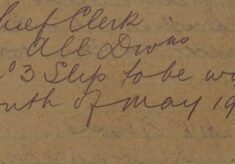 hief Clerk
All Divns
o 3 Slip to be w
onth of May 19